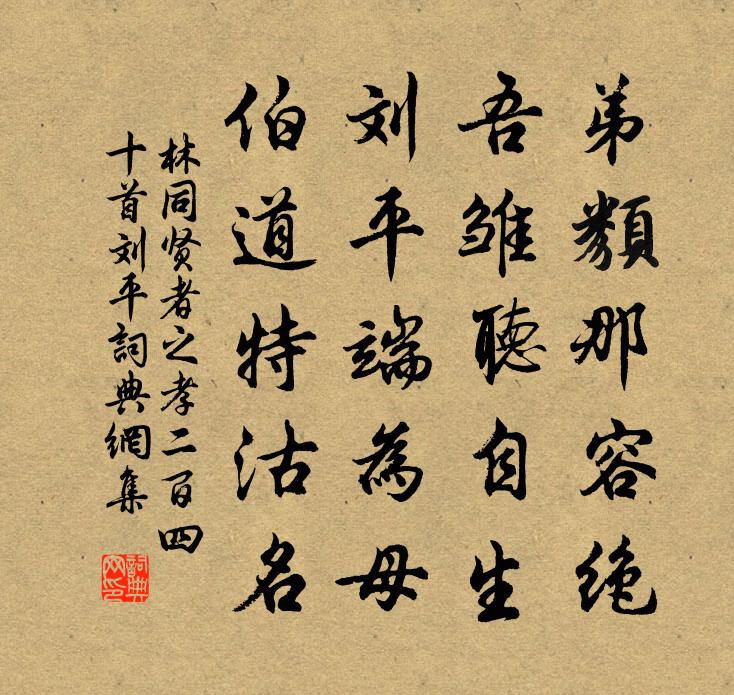 弟類那容绝
吾雏聽自生
刘平端為母
伯道特沽名
林同贤者之孝二百四
十首刘平詞典網集
詞典
网印